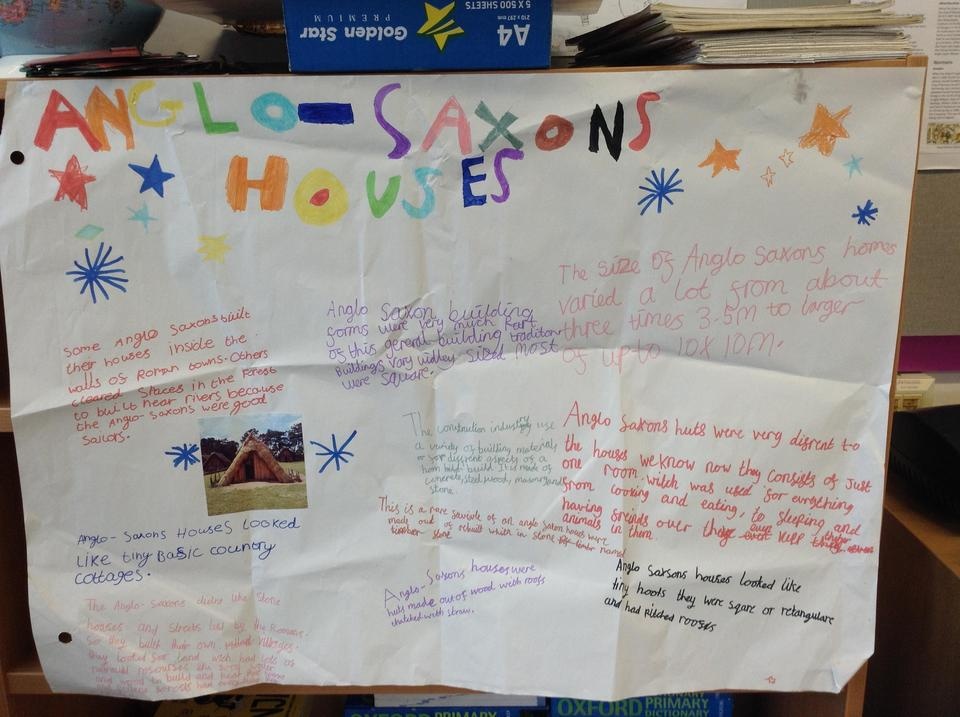 Golden Star
PREMIUM
A4
210 x 297 mm
5 X 500 SHEETS
ANGLO-SAXONS
HOUSES
Some Anglo Saxons built
their houses inside the
walls of Roman towns. Others
cleared spaces in the forest
to built near rivers because
the Anglo-Saxons were good
sailors.
Anglo Saxon building
forms were very much Part
of this gererel building tradition
Buildings vary widley sized most
were square.
The size of Anglo Saxons homes
varied a lot from about
three times 3.5m to larger
of up to 10x10m.
The construction industry use
a variety of building materials
or for disrent aspects of a
hom build. It is made of
concrete, steel, wood, masonry and
stone.
Anglo Saxons huts were very disrent to
the houses we know now they consists of Just
one room witch was used for evrything
from cooking and eating, to sleeping and
having freinds over
animals in them.
This is a rare of an anglo saxon houses were
made out of rebuilt which in stone
Anglo-Saxons Houses Looked
Like tiny Basic country
cottages.
Anglo-Saxons houses were
huts made out of wood with roofs
thatched with straw.
Anglo Saxsons houses looked like
tiny hoots they were sqare or retangulare
and had pitched rooses
The Anglo-Saxons didnt like Stone
houses and streets left by the Romans.
So they built their own villages.
they looked for land wich had lots of
natural resourses like
and wood to build and heat
OXFORD PRIMARY
OXFORD PRIMARY
DICTIONARY